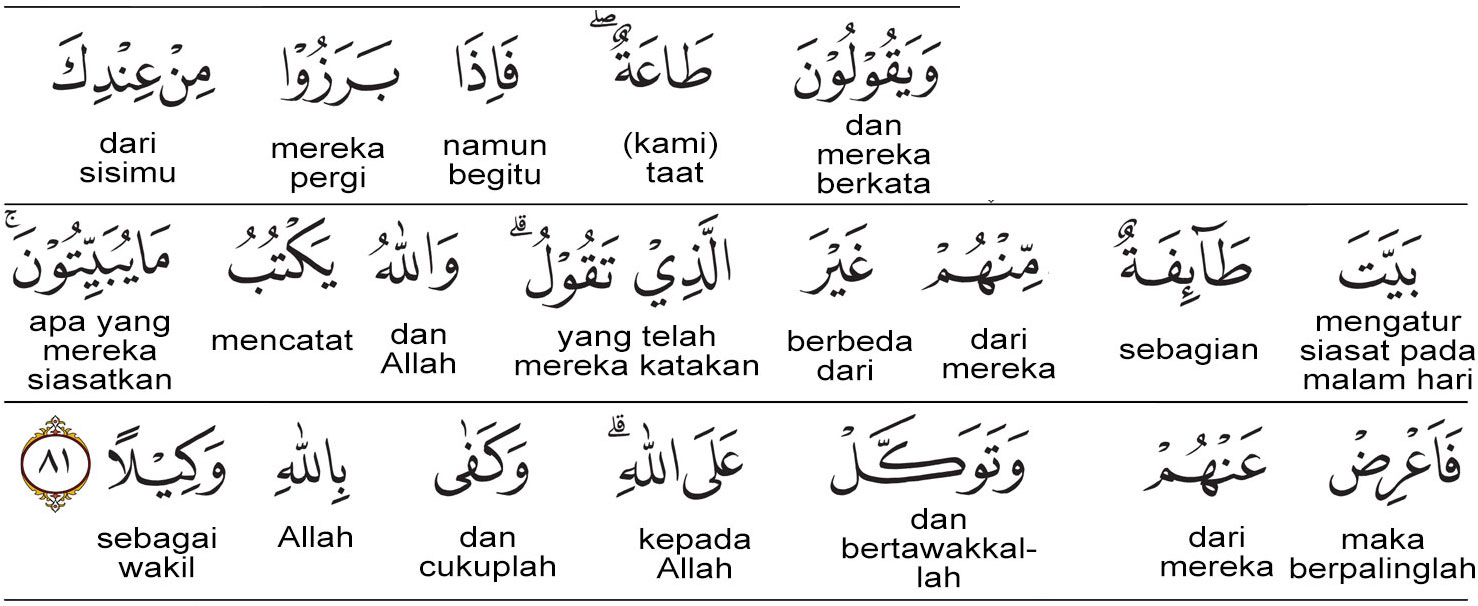 وَيَقُوْلُوْنَ طَاعَةٌ ۖ فَاِذَا بَرَزُوْا مِنْ عِنْدِكَ
dan mereka berkata (kami) taat namun begitu mereka pergi dari sisimu
بَيَّتَ طَآئِفَةٌ مِّنْهُمْ غَيْرَ الَّذِيْ تَقُوْلُ ۗ وَاللّٰهُ يَكْتُبُ مَا يُبَيِّتُوْنَ ۚ
mengatur siasat pada malam hari sebagian dari mereka berbeda dari yang telah mereka katakan dan Allah mencatat apa yang mereka siasatkan
فَاَعْرِضْ عَنْهُمْ وَتَوَكَّلْ عَلَى اللّٰهِ ۗ وَكَفٰى بِاللّٰهِ وَكِيْلًا ٨١
maka berpalinglah dari mereka dan bertawakkal-lah kepada Allah dan cukuplah Allah sebagai wakil